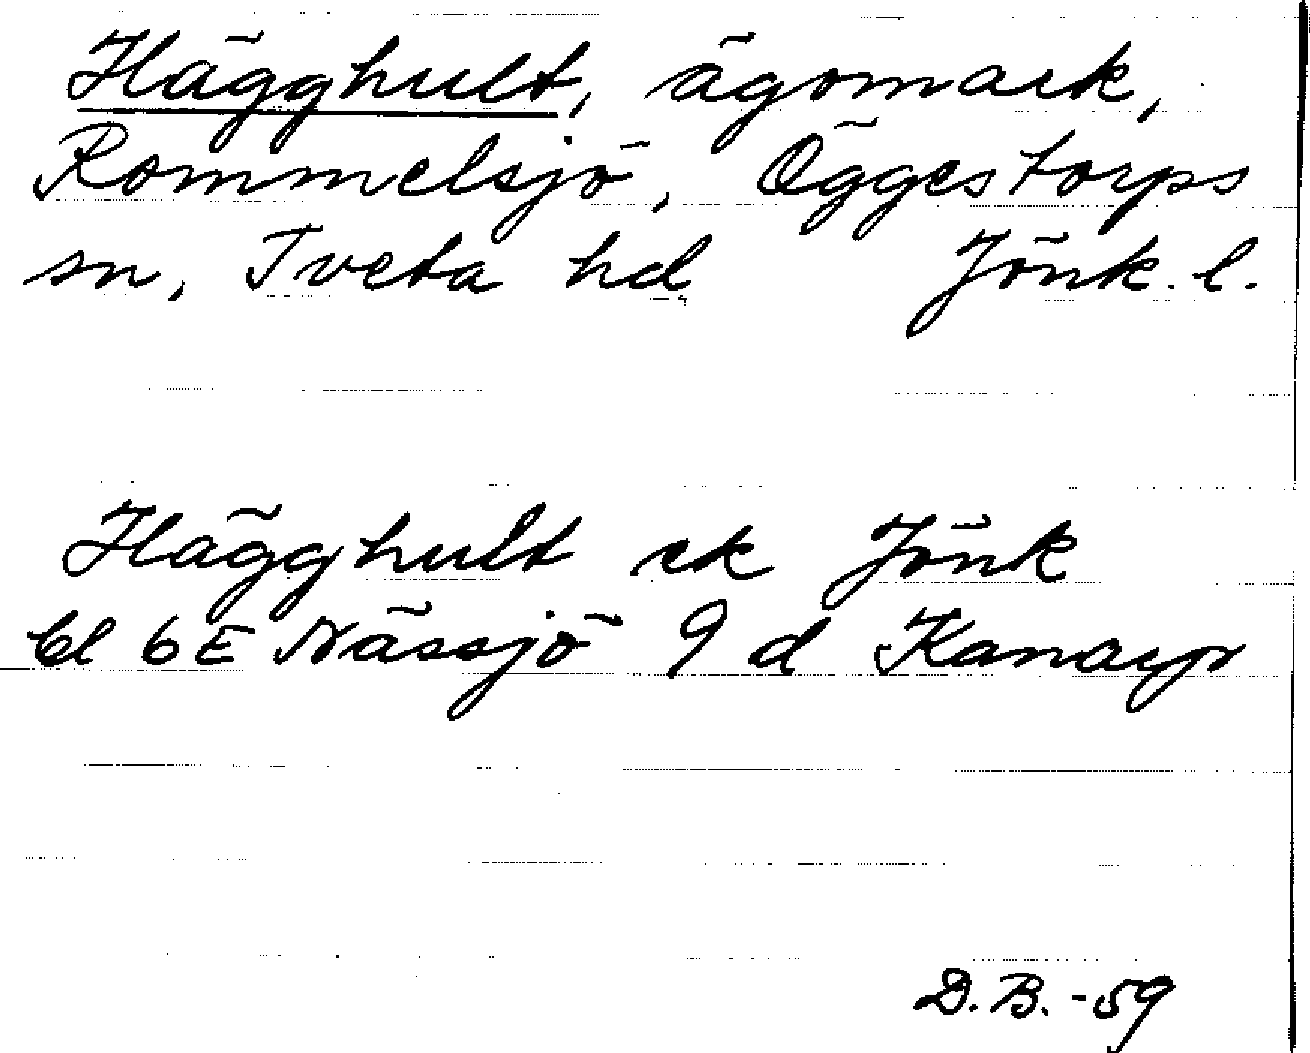 Hägghult, ägomark,
Rommelsjö, Öggestorps
sn, Tveta hd Jönk. l.
Hägghult ek Jönk
bl 6E Nässjö 9 d Kanarp
D.B. -59